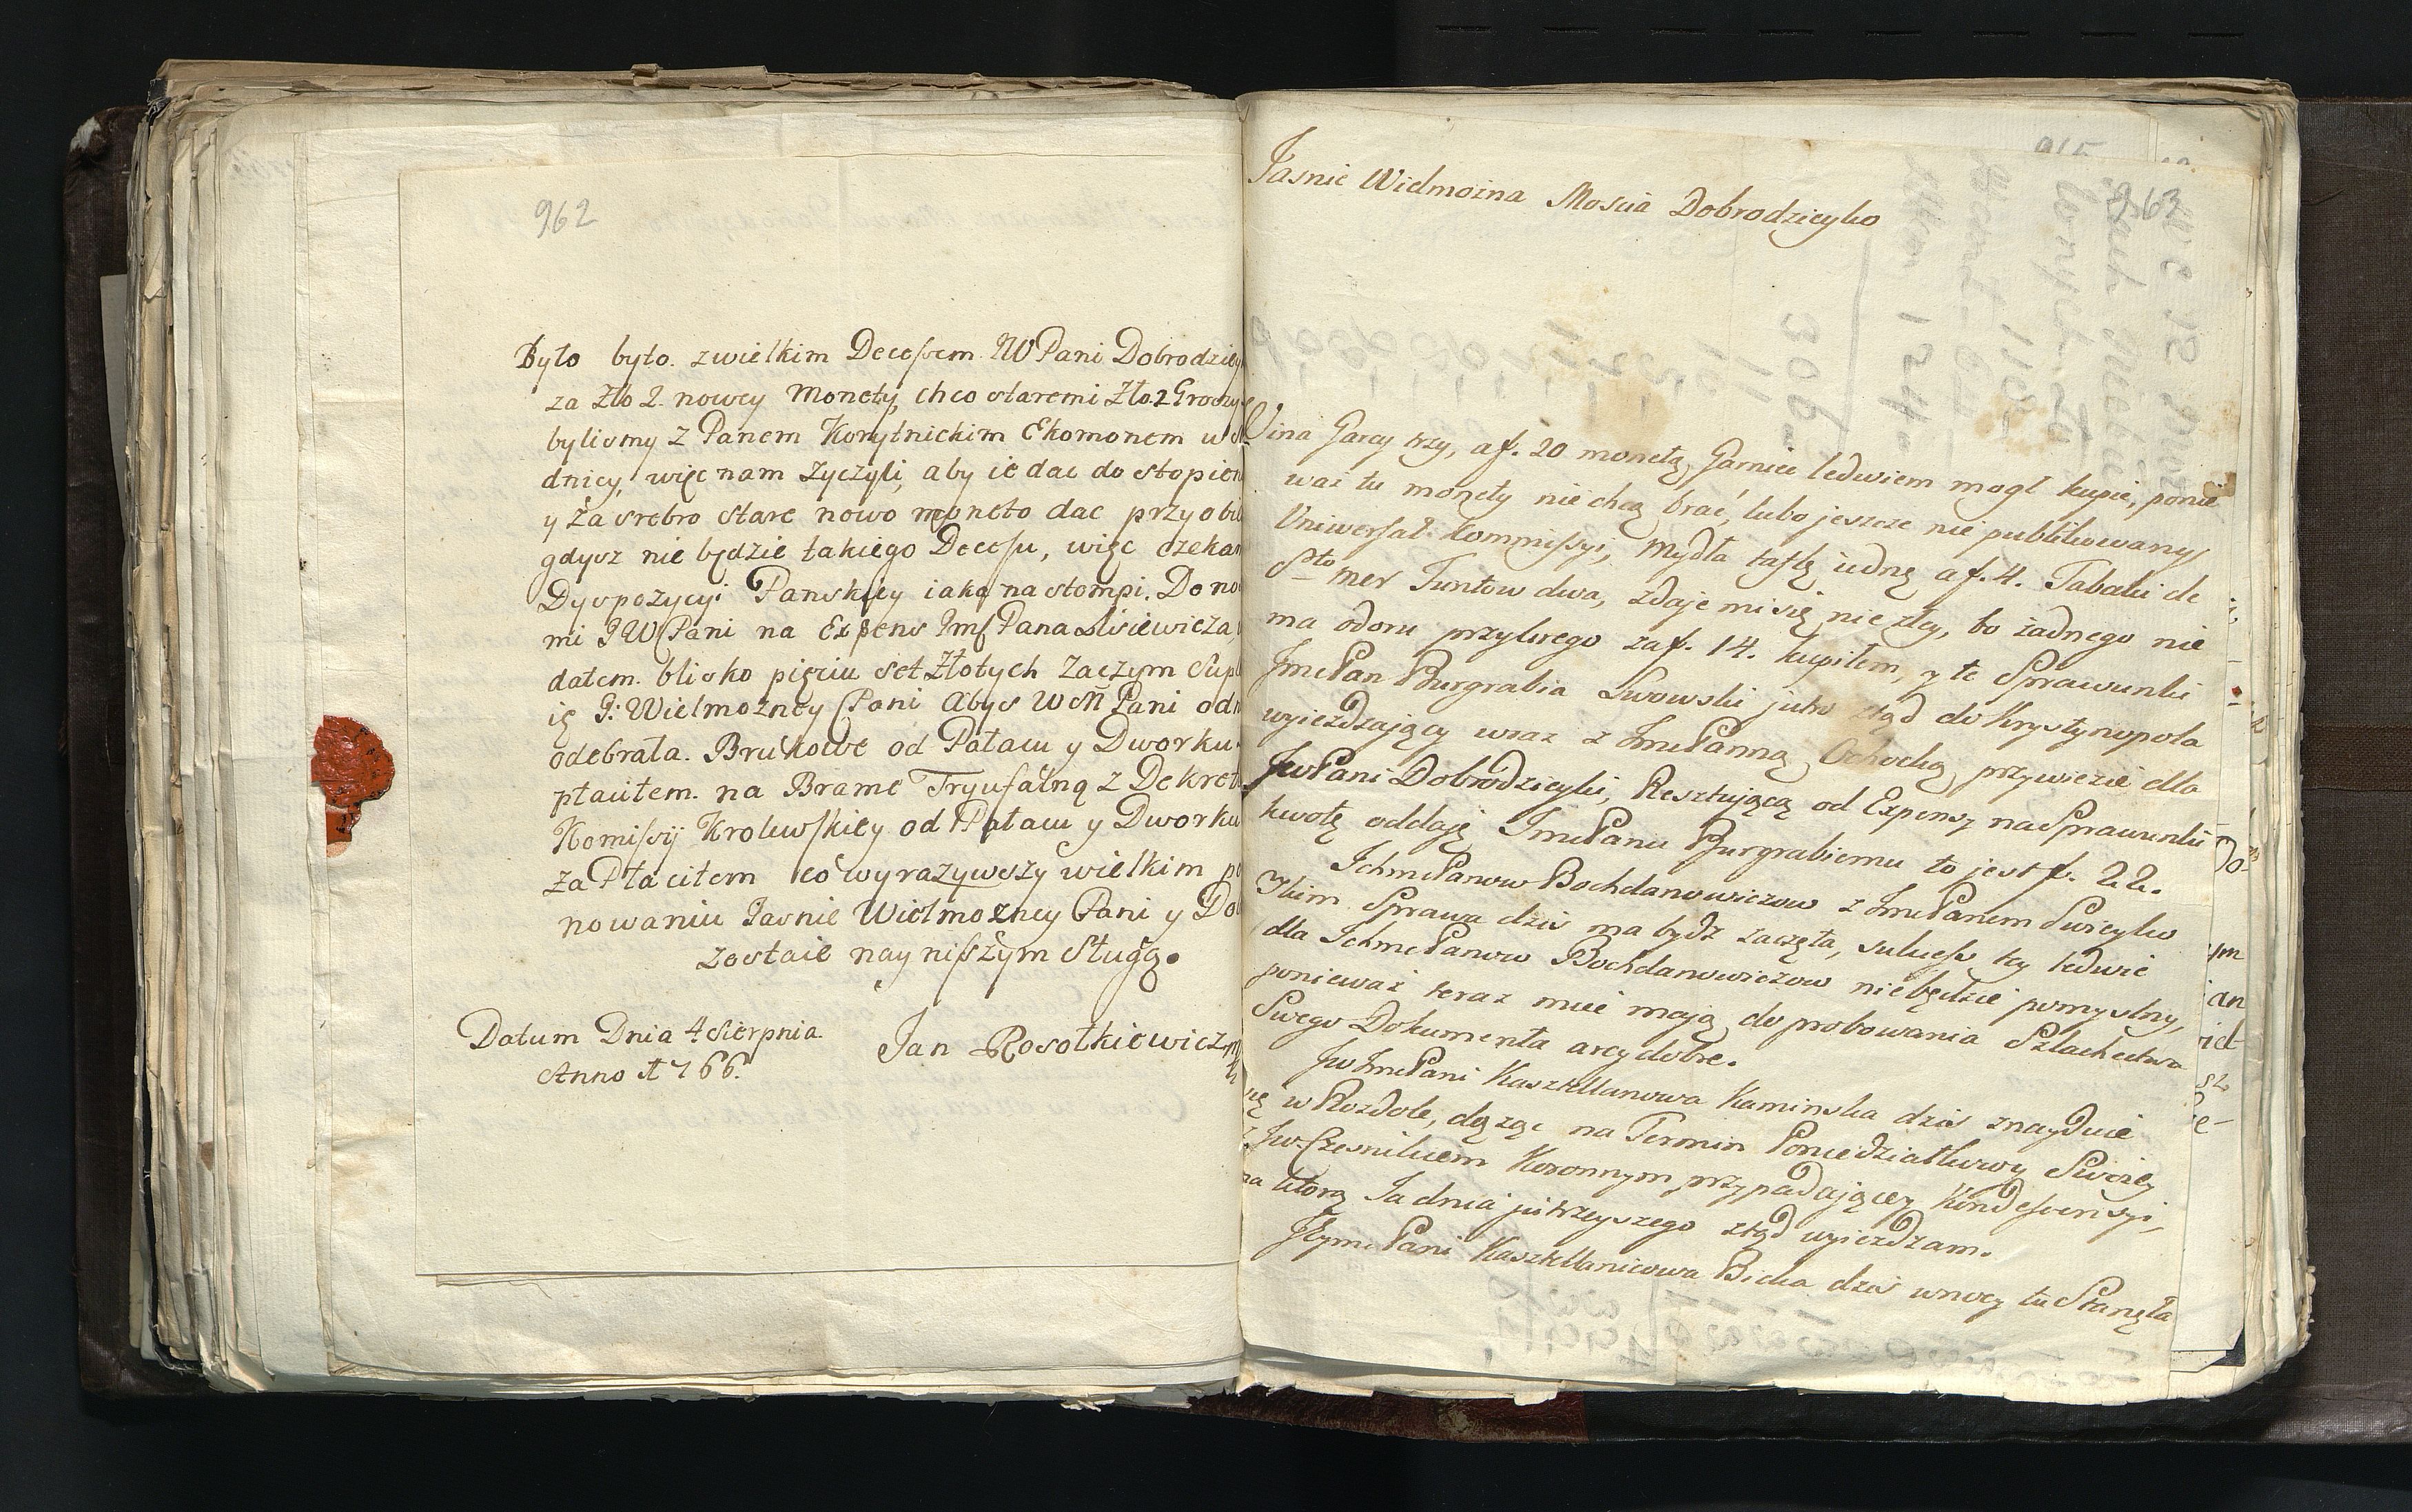 962
Było było. zwielkim Decessem JW Pani Dobrodziey
za Zło 2. nowey Monety, chco staremi Zło. 2 Groszy
bylismy z Panem Korytnickim Ekomonem w
dnicy, więc nam zyczyli, aby ie dac do stopien
y za srebro stare nowo moneto dac przyobi
gdysz nie będzie takiego Decessu, więc czekam
Dyspozycyi Panskiey iaka nastompi. Dono
mi JW Pani na Expens Jm Pana Lisiewicza
dałem. blisko pięciu set Złotych Zaczym Supl
ię J: Wielmozney Pani Abys WM Pani od
odebrała. Brukowe od Pałacu y Dworku
płaciłem. na Brame Tryufalną z Dekret
Komissij Krolewskiey od Pałacu y Dworku
zaPłaciłem co wyrazywszy wielkim po
nowaniu Jasnie Wielmozney Pani y Do
zostaie nayniszym Sługą.
Datum Dnia 4 Sierpnia
Anno 1766.
Jan Rosołkiewicz
963
Jasnie Wielmożna Moscia Dobrodzieyko
Wina Garcy trzy, a f. 20 monetą Garniec ledwiem mogł kupic, ponie
waż tu monety nie chcą brać, lubo jeszcze nie publikowany
Uniwersał Kommissyi, Mydła taflę iedną a f. 4. Tabaki de
Sto mer Funtow dwa, zdaje mi się nie zły, bo żadnego nie
ma odoru przykrego za f. 14. kupiłem, y te Sprawunki
JmcPan Burgrabia Lwowski jutro ztąd do Krystynopola
wyieżdzający wraz z JmcPanną Ochocką przywiezie dla
JwPani Dobrodzieyki, Resztującą od Expensy na Sprawunki
kwotę oddaję JmcPanu Burgrabiemu to jest f. 22.
IchmcPanow Bochdanowiczow z JmcPanem Swieyko
Skim Sprawa dzis ma bydz zaczęta, sukcess ley ledwie
dla IchmcPanow Bochdanowiczow nie będzie pomyslny,
ponieważ teraz mieć mają do probowania Szlachectwa
Swego Dokumenta arcydobre.
JwJmcPani Kasztellanowa Kaminska dzis znayduie
się w Rozdole, dążąc na Termin Poniedziałkowy Swoiey
z Jw Czesnikiem Koronnym przypadającey Kondescensyi,
na ktorą Ja dnia jutrzeyszego ztąd wyieżdzam.
JeymcPani Kasztellanicowa Bielska dzis w nocy tu Stanęła